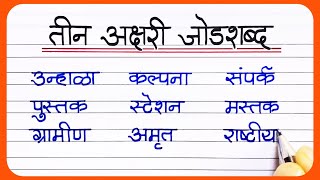 तीन अक्षरी जोडशब्द
उन्हाळा कल्पना संपर्क
पुस्तक स्टेशन मस्तक
ग्रामीण अमृत राष्ट्रीय